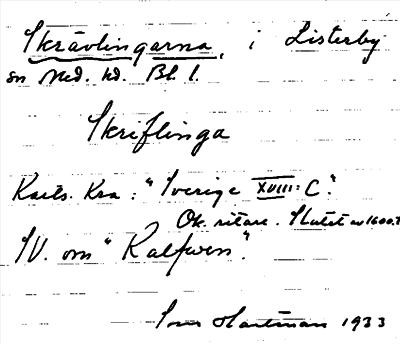 Skrävlingarna, i Listerby
sn Med. hd. Bl. l.
Skriflinga
Karts. Kra: "Sverige XVIII: C".
Ok. ritare. Slutet av 1600.t
SV. om "Kalfven".
Hartman 1933